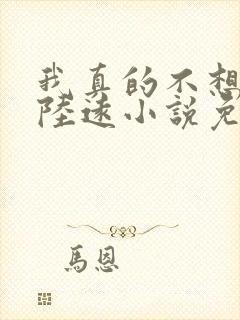 我真的不想
陸遠小說免
馬恩